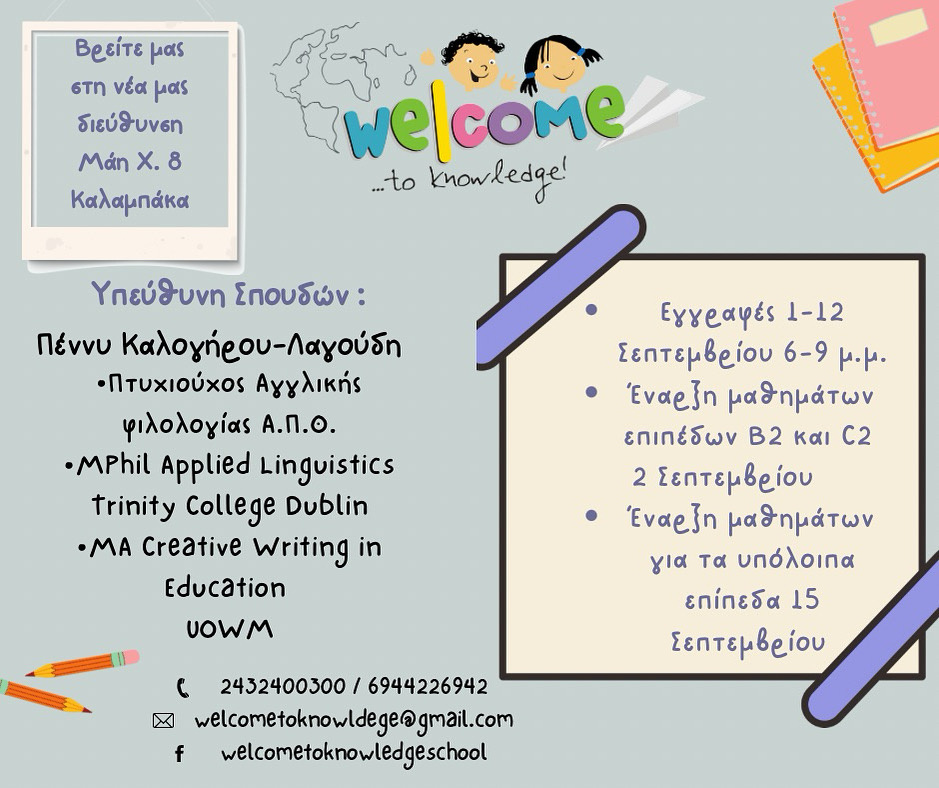 Βρείτε μας
στη νέα μας
διεύθυνση
Μάη Χ. 8
Καλαμπάκα
welcome
...to knowledge!
Υπεύθυνη Σπουδών :
Πέννυ Καλογήρου-Λαγούδη
•Πτυχιούχος Αγγλικής
φιλολογίας Α.Π.Θ.
•MPhil Applied Linguistics
Trinity College Dublin
•MA Creative Writing in
Education
UOWM
2432400300 / 6944226942
welcometoknowldege@gmail.com
f welcometoknowledgeschool
• Εγγραφές 1-12
Σεπτεμβρίου 6-9 μ.μ.
• Έναρξη μαθημάτων
επιπέδων B2 και C2
2 Σεπτεμβρίου
• Έναρξη μαθημάτων
για τα υπόλοιπα
επίπεδα 15
Σεπτεμβρίου